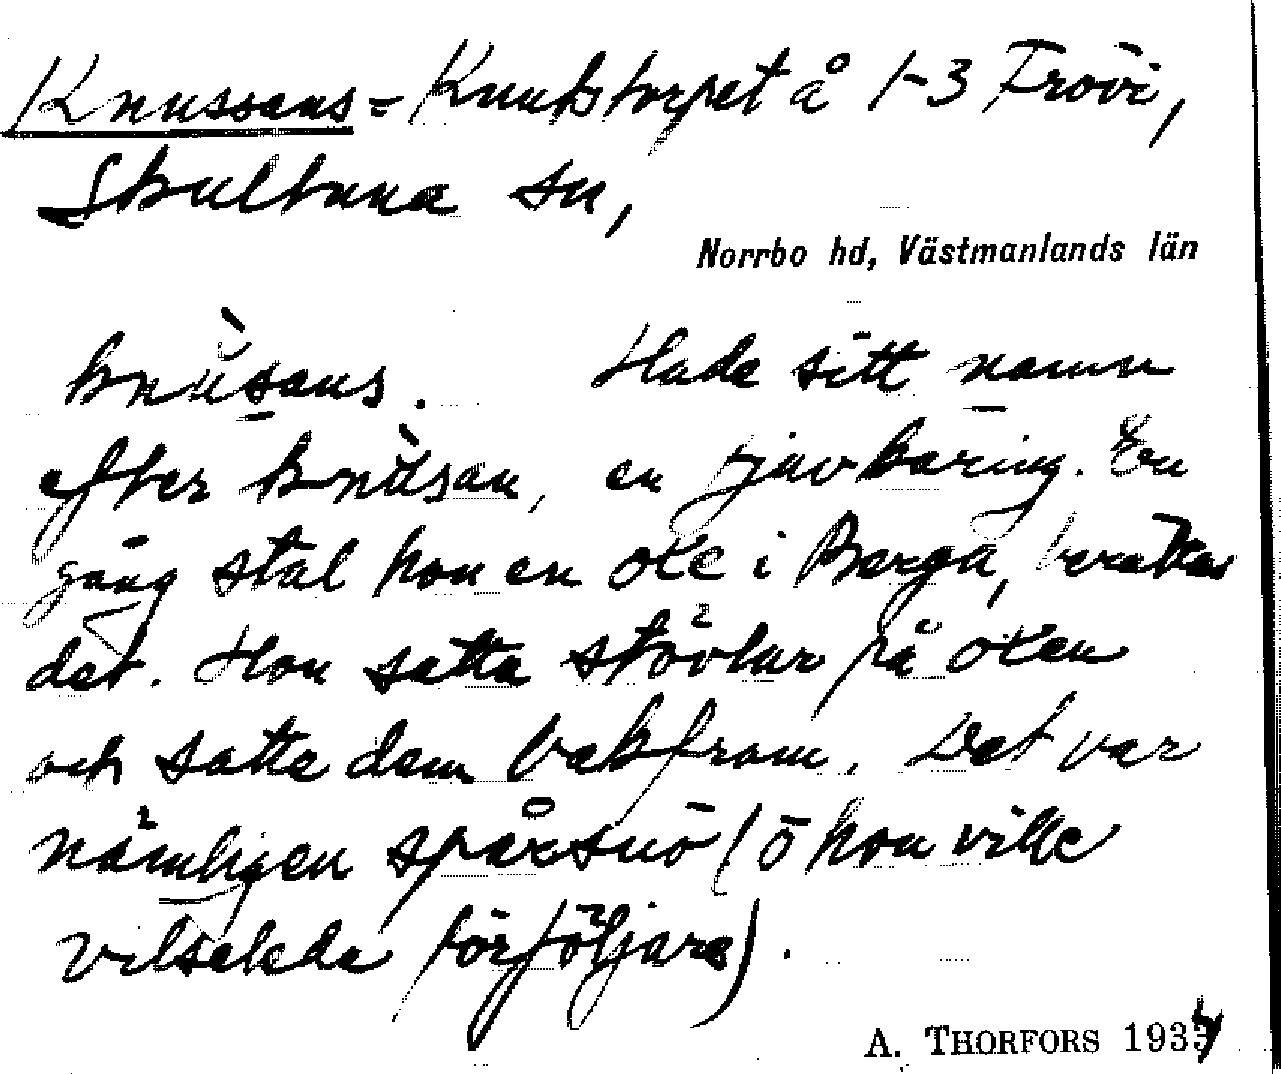 Knussans = Knutstorpet å 1-3 Frövi,
Skultuna sn,
Norrbo hd, Västmanlands län
knùsans. Hade sitt namn
efter knùsan, en tjuvkäring. En
gång stal hon en oxe i Berga, berättas
det. Hon satte stövlar på oxen
och satte dem bakfram. Det var
nämligen spårsnö (o hon ville
vilseleda förföljare).
A. THORFORS 1934